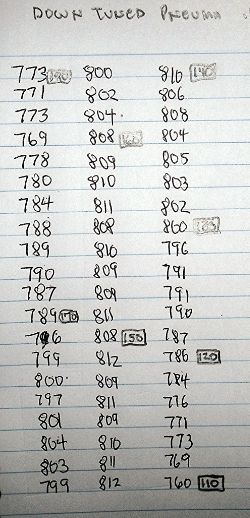 DOWN TUNED PNEUMA
773 800 810 140
771 802 806
773 804 808
769 808 160 804
778 809 805
780 810 803
784 811 802
788 808 800
789 810 796
790 809 791
787 809 791
789 170 811 790
796 808 150 787
799 812 786 120
800 809 784
797 811 776
801 809 771
804 810 773
803 811 769
799 812 760 110